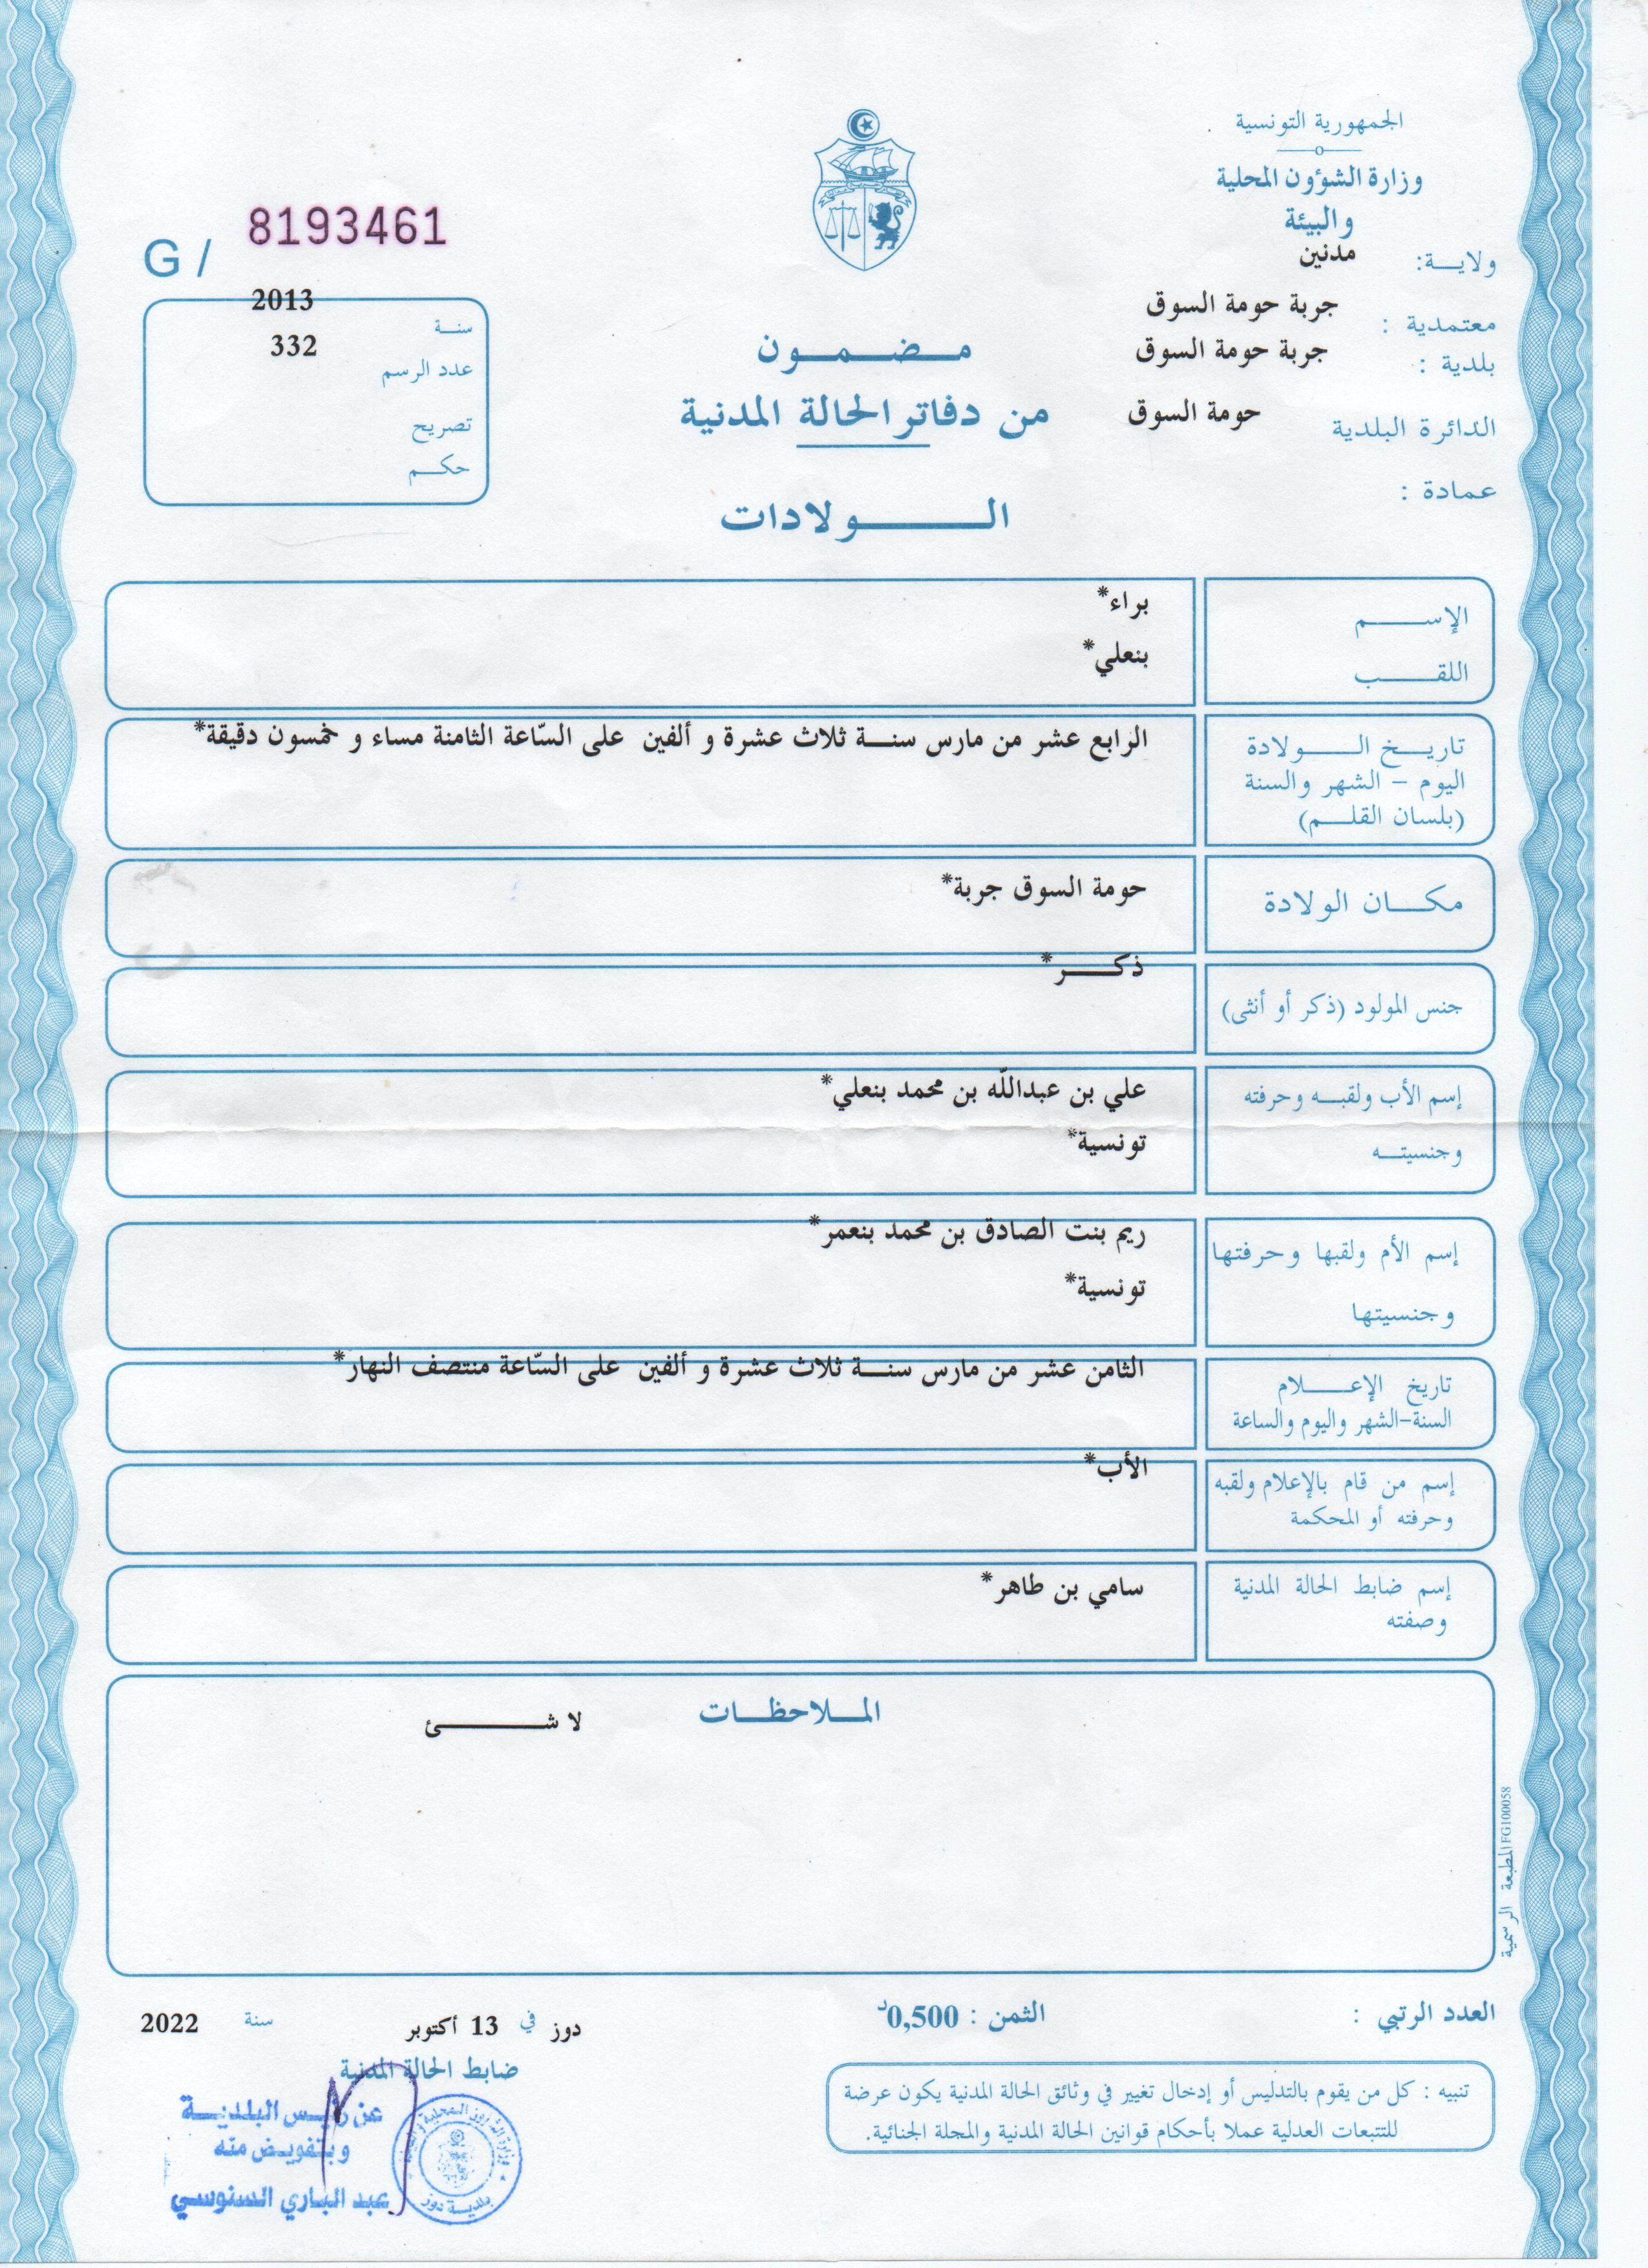 الجمهورية التونسية
وزارة الشؤون المحلية
والبيئة
ولايــة: مدنين
معتمدية : جربة حومة السوق
بلدية : جربة حومة السوق
الدائرة البلدية حومة السوق
عمادة :
مـضـمـون
من دفاتر الحالة المدنية
الـــولادات
G / 8193461
سنـة 2013
عدد الرسم 332
تصريح
حكـم
الإســـم براء*
اللقـــب بنعلي*
تاريــخ الـــولادة الرابع عشر من مارس سنــة ثلاث عشرة و ألفين على السّاعة الثامنة مساء و خمسون دقيقة*
اليوم - الشهر والسنة
(بلسان القلـــم)
مكــان الولادة حومة السوق جربة*
جنس المولود (ذكر أو أنثى) ذكــــر*
إسم الأب ولقبــه وحرفته علي بن عبداللّه بن محمد بنعلي*
وجنسيتــه تونسية*
إسم الأم ولقبها وحرفتها ريم بنت الصادق بن محمد بنعمر*
وجنسيتها تونسية*
تاريخ الإعــــلام الثامن عشر من مارس سنــة ثلاث عشرة و ألفين على السّاعة منتصف النهار*
السنة-الشهر واليوم والساعة
إسم من قام بالإعلام ولقبه الأب*
وحرفته أو المحكمة
إسم ضابط الحالة المدنية سامي بن طاهر*
وصفته
المــلاحظــات
لا شـــــئ
المطبعة الرسمية FG100058
العدد الرتبي :
الثمن : 0,500د
دوز في 13 أكتوبر سنة 2022
ضابط الحالة المدنية
تنبيه : كل من يقوم بالتدليس أو إدخال تغيير في وثائق الحالة المدنية يكون عرضة
للتتبعات العدلية عملا بأحكام قوانين الحالة المدنية والمجلة الجنائية.
عن رئيس البلديــة
وبتفويض منه
عبد الباري السنوسي
بلديــة دوز